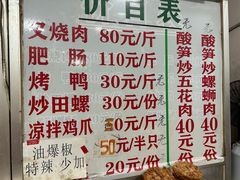 价目表
叉烧肉 80元/斤
肥肠 110元/斤
烤鸭 30元/斤
炒田螺 30元/份
凉拌鸡爪 元/份
50元/半只
20元/份
油爆椒
特辣 少加
酸笋炒五花肉40元/份
酸笋炒螺蛳肉40元/份